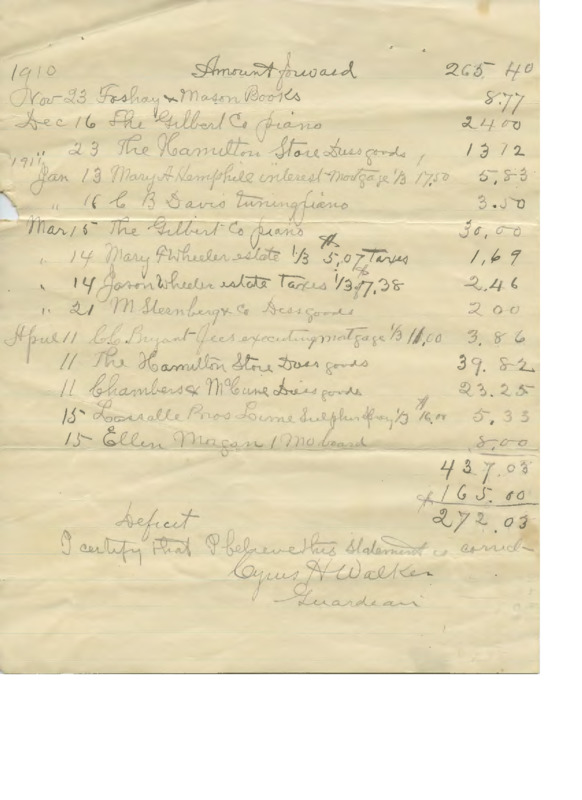 1910 Amount forward 265.40
Nov 23 Foshay & Mason Books 8.77
Dec 16 The Gilbert Co piano 24 00
" 23 The Hamilton Store Dress goods, 13 72
1911
Jan 13 Mary A Hemphill interest Mortgage 1/3 17.50 5.83
" 16 C B Davis tuning piano 3.50
Mar 15 The Gilbert Co piano 30,00
" 14 Mary F Wheeler estate 1/3 $5,07 Taxes 1,69
" 14 Jason Wheeler estate Taxes 1/3 $7.38 2.46
" 21 M Sternberg & Co Dress goods 2 00
April 11 C C Bryant fees executing mortgage 1/3 11,00 3.86
11 The Hamilton Store Dress goods 39.82
11 Chambers & McCune Dress goods 23.25
15 Bros Lime Sulphur Spray 1/3 $16,00 5.33
15 Ellen Morgan 1 Mo board 8.00
437.03
$165.00
Deficit 272.03
I certify that I believe this statement is correct
Cyrus H Walker
Guardian